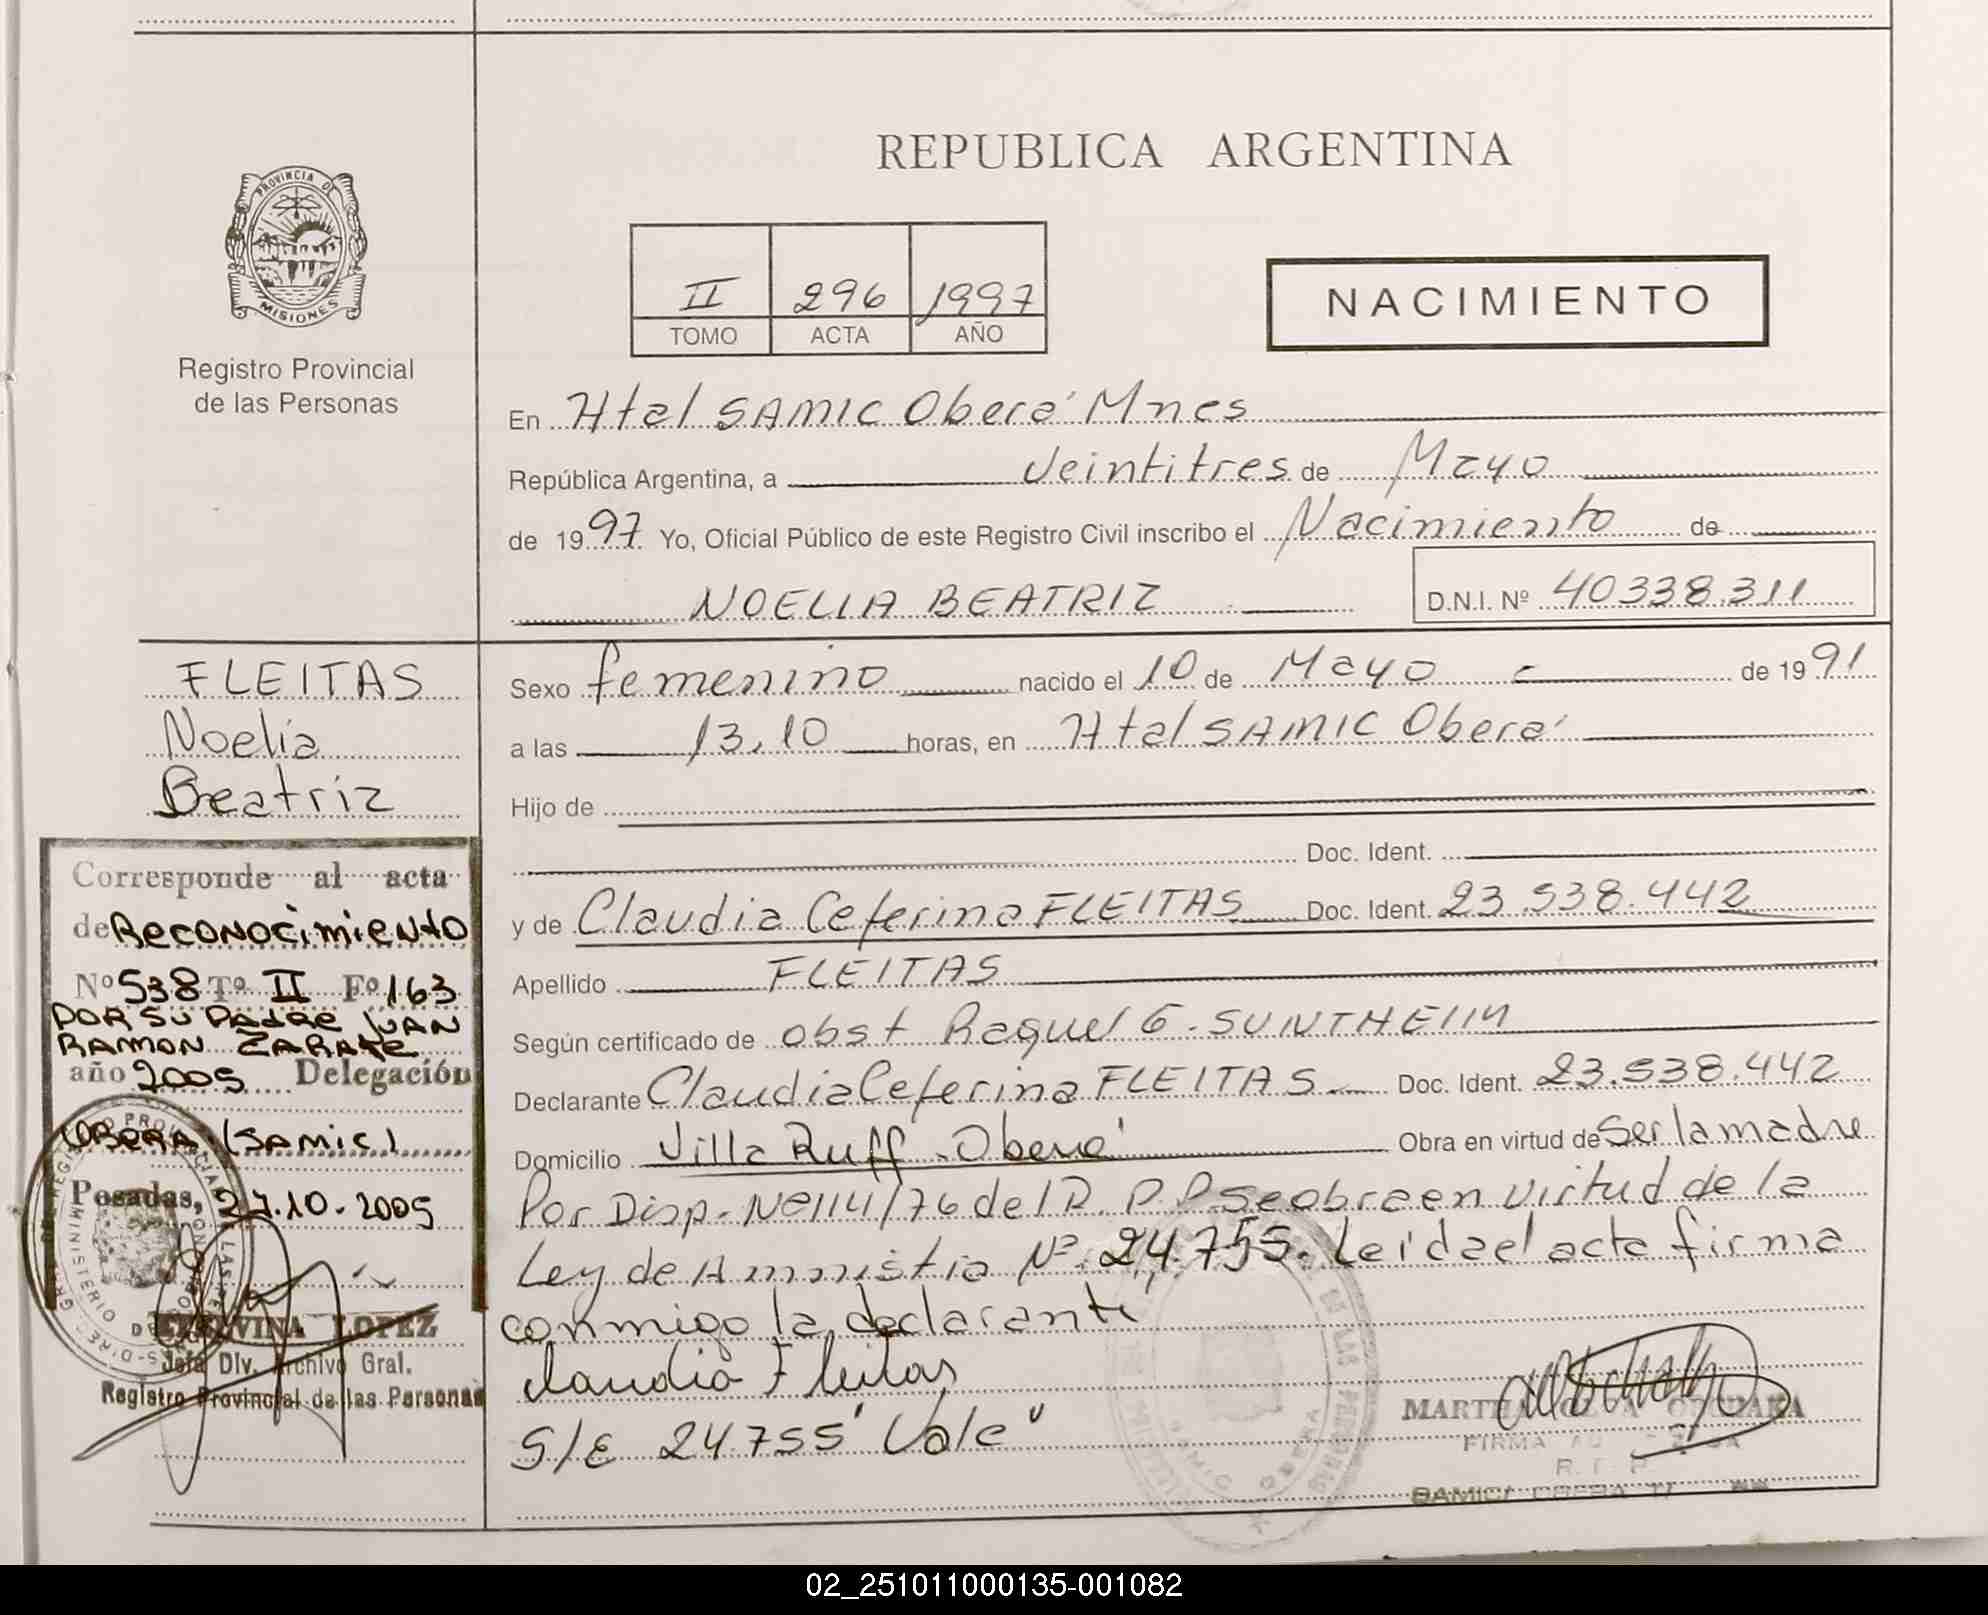 REPUBLICA ARGENTINA
PROVINCIA DE
MISIONES
Registro Provincial
de las Personas
II 296 1997
TOMO ACTA AÑO
NACIMIENTO
En Htal SAMIC Oberá Mnes
República Argentina, a Veintitres de Mayo
de 1997 Yo, Oficial Público de este Registro Civil inscribo el Nacimiento de
NOELIA BEATRIZ
D.N.I. Nº 40338.311
FLEITAS
Noelia
Beatriz
Sexo femenino nacido el 10 de Mayo de 1991
a las 13,10 horas, en Htal SAMIC Oberá
Hijo de
Doc. Ident.
y de Claudia Ceferina FLEITAS Doc. Ident. 23.538.442
Apellido FLEITAS
Según certificado de obst Raquel G. SUNTHEIM
Declarante Claudia Ceferina FLEITAS Doc. Ident. 23.538.442
Domicilio Villa Ruff - Oberá Obra en virtud de Ser la madre
Por Disp. Nº 114/76 del R. P. P. Se obra en virtud de la
Ley de Amnistia Nº 24.755. Leida el acta firma
conmigo la declarante
Claudia Fleitas
S/E 24755 "Vale"
Corresponde al acta
de Reconocimiento
Nº 538 Tº II Fº 163
POR SU PADRE JUAN
RAMON ZARATE
año 2005 Delegación
OBERA (SAMIC)
Posadas, 27.10.2005
LOPEZ
Jefa Div. Archivo Gral.
Registro Provincial de las Personas
MARTHA
FIRMA
02_251011000135-001082